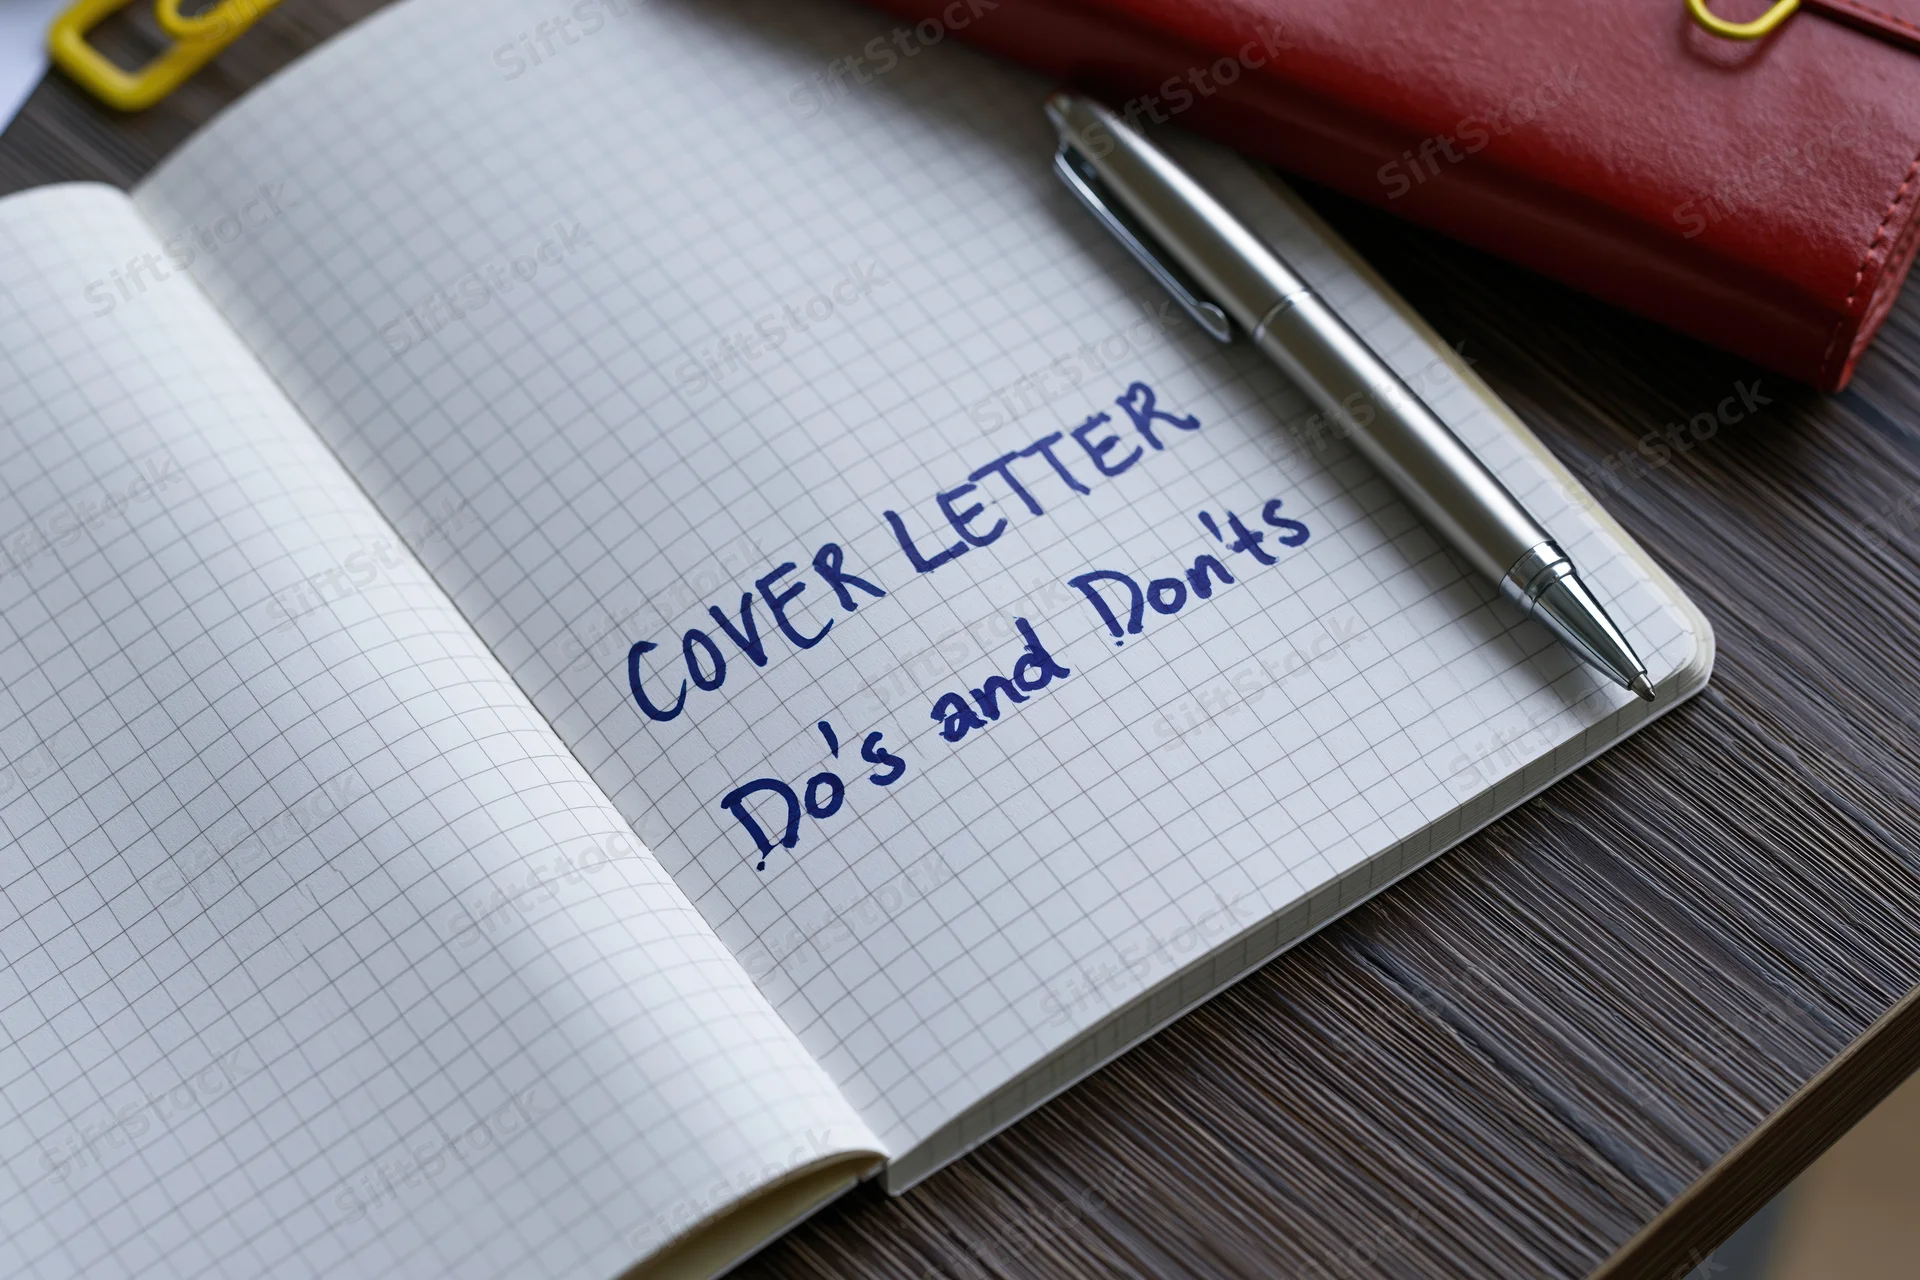 COVER LETTER
Do's and Don'ts
SiftStock